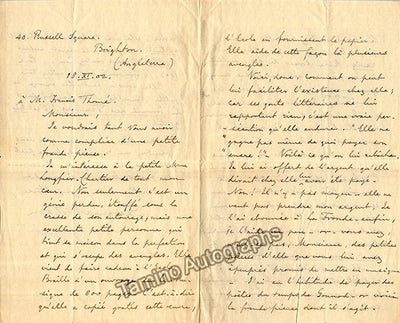 40. Russell Square.
Brighton.
(Angleterre)
18.XI.02.
à M. Francis Thomé.
Monsieur,
Je voudrais tant vous avoir
comme complice d'une petite
fraude pieuse.
Je m'intéresse à la petite Mme
de tout mon
cœur. Non seulement c'est un
génie perdu, étouffé sous la
de son entourage, mais une
excellente petite personne qui
tient sa maison dans la perfection
et qui s'occupe des aveugles. Elle
vient de faire cadeau à l'
Braille d'un
de 800 pages, c'est-à-dire
qu'elle a copié gratis cette œuvre,
l'École en fournissant le papier.
Elle aide de cette façon là plusieurs
aveugles.
Voilà, donc, comment on peut
lui faciliter l'existence chez elle;
car ses goûts littéraires ne lui
rapportent rien, c'est une vraie per-
sécution qu'elle endure. "Elle ne
gagne pas même de quoi payer son
encre!" Voilà ce qu'on lui
Je lui ai offert de l'argent qu'elle
dirait chez elle lui avoir été payé.
Non! Il n'y a pas moyen — elle ne
veut pas prendre mon argent. Je
l'ai abonnée à la Fronde — enfin,
je l'aide un peu — or — vous avez,
Monsieur, des petites
d'elle que vous lui avez
promis de mettre en musique
— J'ai eu l'habitude de payer des
poètes du temps de Gounod — or voici
la fraude pieuse dont il s'agit.
Tamino Autographs